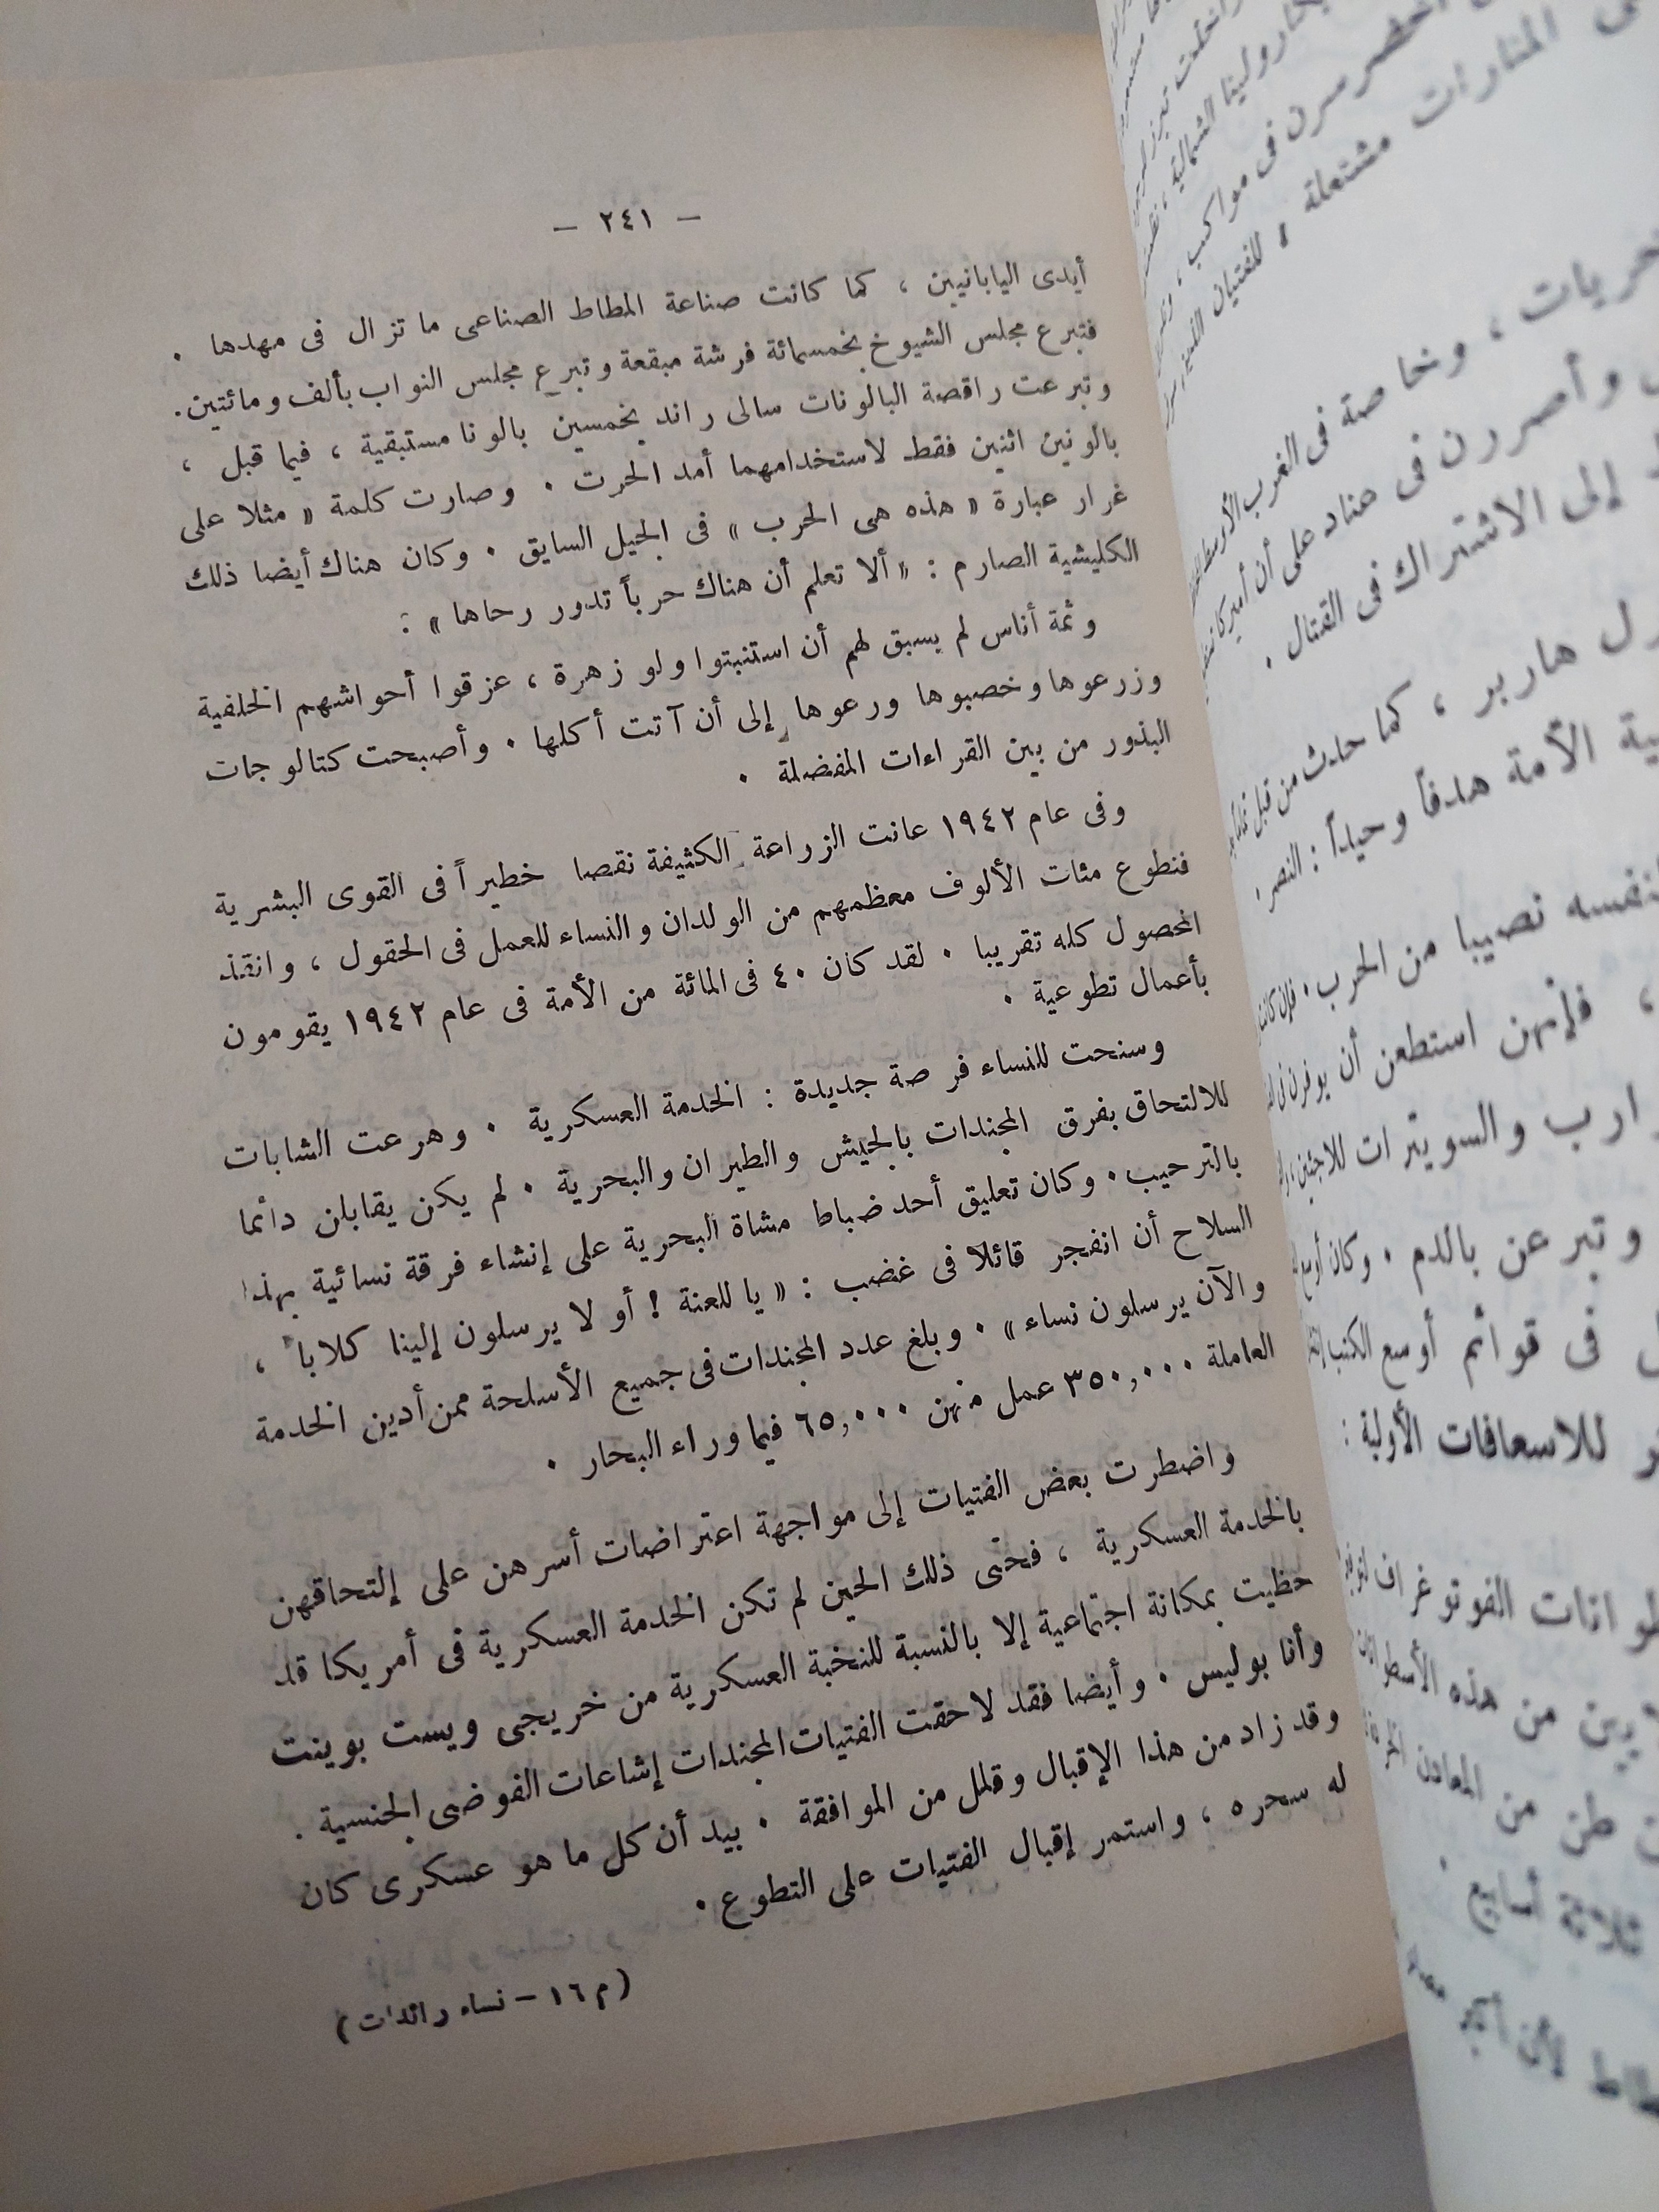 — ٢٤١ —
أيدى اليابانيين ، كما كانت صناعة المطاط الصناعى ما تزال فى مهدها .
فتبرع مجلس الشيوخ بخمسمائة فرشة مبقعة وتبرع مجلس النواب بألف ومائتين .
وتبرعت راقصة البالونات سالى راند بخمسين بالونا مستبقية ، فيما قبل ،
بالونين اثنين فقط لاستخدامهما أمد الحرت . وصارت كلمة « مثلا على
غرار عبارة « هذه هى الحرب » فى الجيل السايق . وكان هناك أيضا ذلك
الكليشية الصارم : « ألا تعلم أن هناك حرباً تدور رحاها » :
وثمة أناس لم يسبق لهم أن استنبتوا ولو زهرة ، عزقوا أحواشهم الخلفية
وزرعوها وخصبوها ورعوها إلى أن آتت أكلها . وأصبحت كتالوجات
البذور من بين القراءات المفضلة .
وفى عام ١٩٤٢ عانت الزراعة الكثيفة نقصا خطيراً فى القوى البشرية
فتطوع مئات الألوف معظمهم من الولدان والنساء للعمل فى الحقول ، وانقذ
المحصول كله تقريبا . لقد كان ٤٠ فى المائة من الأمة فى عام ١٩٤٢ يقومون
بأعمال تطوعية .
وسنحت للنساء فرصة جديدة : الخدمة العسكرية . وهرعت الشابات
للالتحاق بفرق المجندات بالجيش والطيران والبحرية . لم يكن يقابلن دائما
بالترحيب . وكان تعليق أحد ضباط مشاة البحرية على إنشاء فرقة نسائية بهذا
السلاح أن انفجر قائلا فى غضب : « يا للعنة ! أو لا يرسلون إلينا كلابا ،
والآن يرسلون نساء » . وبلغ عدد المجندات فى جميع الأسلحة ممن أدين الخدمة
العاملة ٣٥٠,٠٠٠ عمل منهن ٦٥,٠٠٠ فيما وراء البحار .
واضطرت بعض الفتيات إلى مواجهة اعتراضات أسرهن على إلتحاقهن
بالخدمة العسكرية ، فحتى ذلك الحين لم تكن الخدمة العسكرية فى أمريكا قد
حظيت بمكانة اجتماعية إلا بالنسبة للنخبة العسكرية من خريجى ويست بوينت
وأنا بوليس . وأيضا فقد لاحقت الفتيات المجندات إشاعات الفوضى الجنسية .
وقد زاد من هذا الإقبال وقلل من الموافقة . بيد أن كل ما هو عسكرى كان
له سحره ، واستمر إقبال الفتيات على التطوع .
(م ١٦ – نساء رائدات)
المنارات مشتعلة
حريات ، وخاصة فى الغرب الأوسط
وأصررن فى عناد على أن أميركا
إلى الاشتراك فى القتال .
هاربر ، كما حدث من قبل
الأمة هدفاً وحيداً : النصر .
نفسه نصيبا من الحرب .
، فإنهن استطعن أن يوفرن
والسويترات للاجئين
وتبرعن بالدم . وكان
فى قوائم أوسع الكتب
للاسعافات الأولية :
الفوتوغراف
من هذه
طن من المعادن
ثلاثة أسابيع .